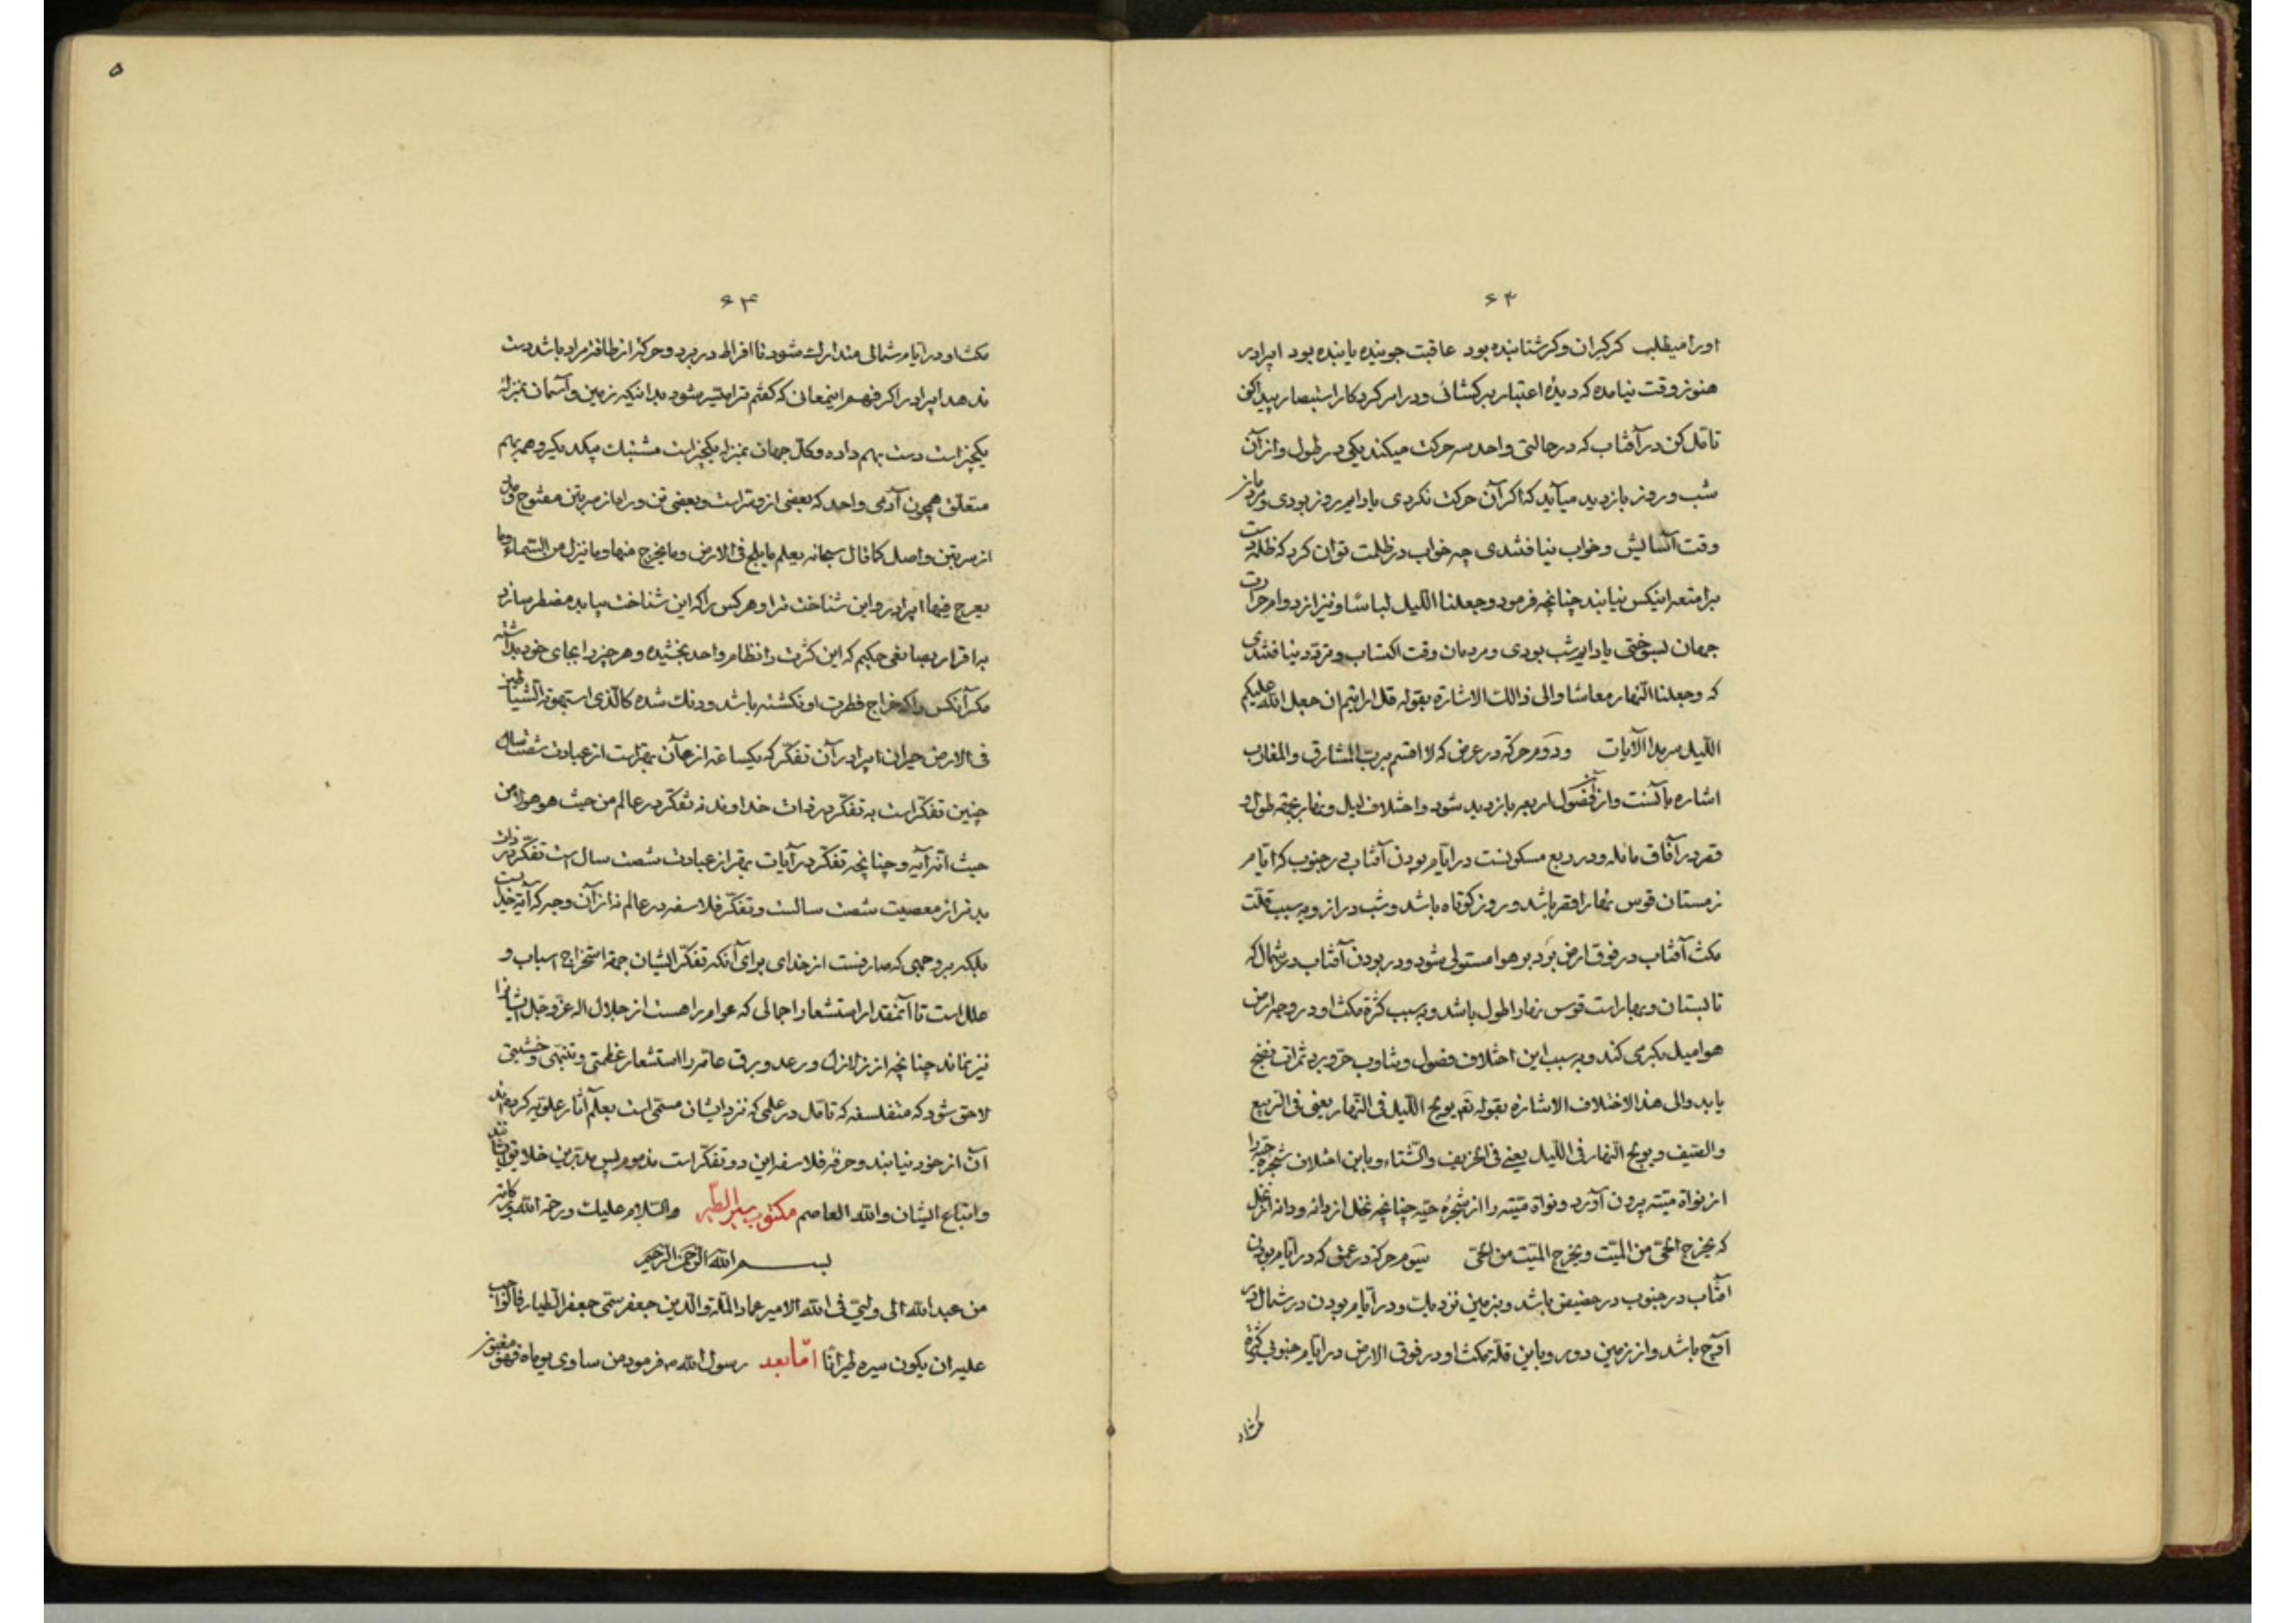 ۶۲
اورا میطلب کر کران و کر شتابنده بود عاقبت جوینده یابنده بود ایبرادر
هنوز وقت نیامده که دیده اعتبار برکشائی و در امر کردکار استبصار پیدا کنی
تامل کن در آفتاب که در حالتی واحد سه حرکت میکند یکی در طول و از آن
شب و روز بازدید میآید که اگر آن حرکت نکردی یا دایم روز بودی و مردمانرا
وقت آسایش و خواب نیافتندی چه خواب در ظلمت توان کرد که ظلمت
برامتعه اینکس نیابند چنانچه فرمود وجعلنا اللیل لباسا و نیز از دوام حرارت
جهان بسوختی یا دایم شب بودی و مردمان وقت اکتساب و تردد نیافتندی
که وجعلنا النهار معاشا والی ذالك الاشارة بقوله قل ارایتم ان جعل الله علیکم
اللیل سرمدا الآیات ودوم حرکة در عرض که لا اقسم برب المشارق والمغارب
اشاره بآنست و از آن فصول اربعه بازدید شود و اختلاف لیل و نهار بجهة طول و
قصر در آفاق مائله و در ربع مسکونست در ایام بودن آفتاب در جنوب که ایام
زمستان قوس نهار اقصر باشد و روز کوتاه باشد و شب دراز و به سبب قلت
مکث آفتاب در فوق ارض برد بر هوا مستولی شود و در بودن آفتاب در شمال که
تابستان و بهار است قوس نهار اطول باشد و به سبب کثرة مکث او در وجه ارض
هوا میل بگرمی کند و به سبب این اختلاف فصول و تناوب حر و برد ثمرات نضج
یابد والی هذا الاختلاف الاشارة بقوله تع یولج اللیل فی النهار یعنی فی الربیع
والصیف و یولج النهار فی اللیل یعنی فی الخریف والشتاء و باین اختلاف شجره حیه را
از نواة میته برون آورد و نواة میته را از شجره حیه چنانچه نخل از دانه و دانه از نخل
که یخرج الحی من المیت و یخرج المیت من الحی سیوم حرکة در عمق که در ایام بودن
آفتاب در جنوب در حضیض باشد و بزمین نزدیك و در ایام بودن در شمال در
اوج باشد و از زمین دور و باین قلة مکث او در فوق الارض در ایام جنوبی کثرة
۶۳
مکث او در ایام شمالی متدارك شود تا افراط در برد و حر که از طاقة مراد باشد دست
ندهد ایبرادر اگر فهم اینمعانی که گفتم ترا میسر شود بدانیکه زمین و آسمان بمنزله
یکچیز است دست بهم داده و کل جهان بمنزله یکچیز است مشتبك بیکدیگر و همه بهم
متعلق همچون آدمی واحد که بعضی از و سر است و بعضی تن و راه از سر بتن مفتوح و مدد
از سر بتن واصل کما قال سبحانه یعلم ما یلج فی الارض وما یخرج منها وما ینزل من السماء وما
یعرج فیها ایبرادر و این شناخت ترا و هر کس را که این شناخت بیابد مضطر سازد
براقرار بصانعی حکیم که این کثرت را نظام واحد بخشیده و هر چیز را بجای خود بداشته
مکر آنکس را که مزاج فطرت او نکشته باشد و دنك شده کالذی استهوته الشیاطین
فی الارض حیران ایبرادر آن تفکر که یکساعة از آن بهتر است از عبادت شصت سال
چنین تفکر است نه تفکر در ذات خداوند نه تفکر در عالم من حیث هو هو لا من
حیث انه آیه و چنانچه تفکر در آیات بهتر از عبادت شصت سال است تفکر در ذات
بدتر از معصیت شصت سالست و تفکر فلاسفه در عالم نه از آن وجه که آیة خداست
بلکه بروجهی که صارفست از خدای برای آنکه تفکر ایشان جهة استخراج اسباب و
علل است تا آنمقدار استشعار اجمالی که عوام را هست از جلال اله عز و جل ایشانرا
نیز نماند چنانچه از زلازل و رعد و برق عامه را استشعار عظمتی و تنبهی و خشیتی
لاحق شود که متفلسفه که تامل در علمی که نزد ایشان مسمی است بعلم آثار علویه کرده‌اند
آن از خود نیابند و حرفه فلاسفه این دو تفکر است مذموم پس بدترین خلایق ایشانند
و اتباع ایشان والله العاصم والسلام علیك ورحمة الله وبرکاته
بسم الله الرحمن الرحیم
من عبدالله الی ولیی فی الله الامیر عماد الملة والدین جعفر سمی جعفر الطیار فالواجب
علیه ان یکون سیره طیرانا اما بعد رسول الله ص فرمود من ساوی یوماه فهو مغبون